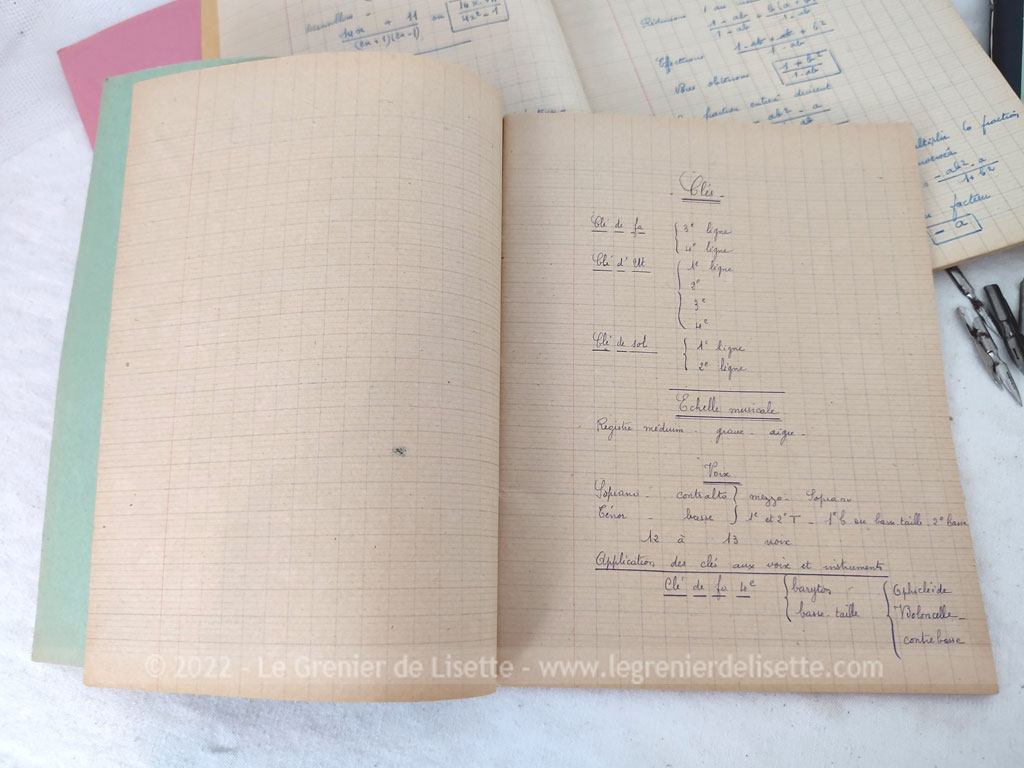 14x + 11
(2x+1)(2x-1)
ou
4x² - 1
Réduisons
1 - ab
Effectuons
1 - ab + ab + b²
1 - ab
Nous obtenons
1 + b²
1 - ab
fraction entière devient
ab² - a
la fraction
- ab² - a
1 + b²
facteur
- a
- Clés -
Clé de fa { 3e ligne
4e ligne
Clé d'Ut { 1e ligne
2e
3e
4e
Clé de sol { 1e ligne
2e ligne
Echelle musicale
Registre médium - grave - aigu -
Voix
Soprano - contralto } mezzo - Soprano
Ténor - basse } 1e et 2e T - 1e b ou basse-taille - 2e basse
12 à 13 voix
Application des clés aux voix et instruments
Clé de fa 4e { baryton { Ophicléide
basse-taille Violoncelle -
contrebasse
© 2022 - Le Grenier de Lisette - www.legrenierdelisette.com